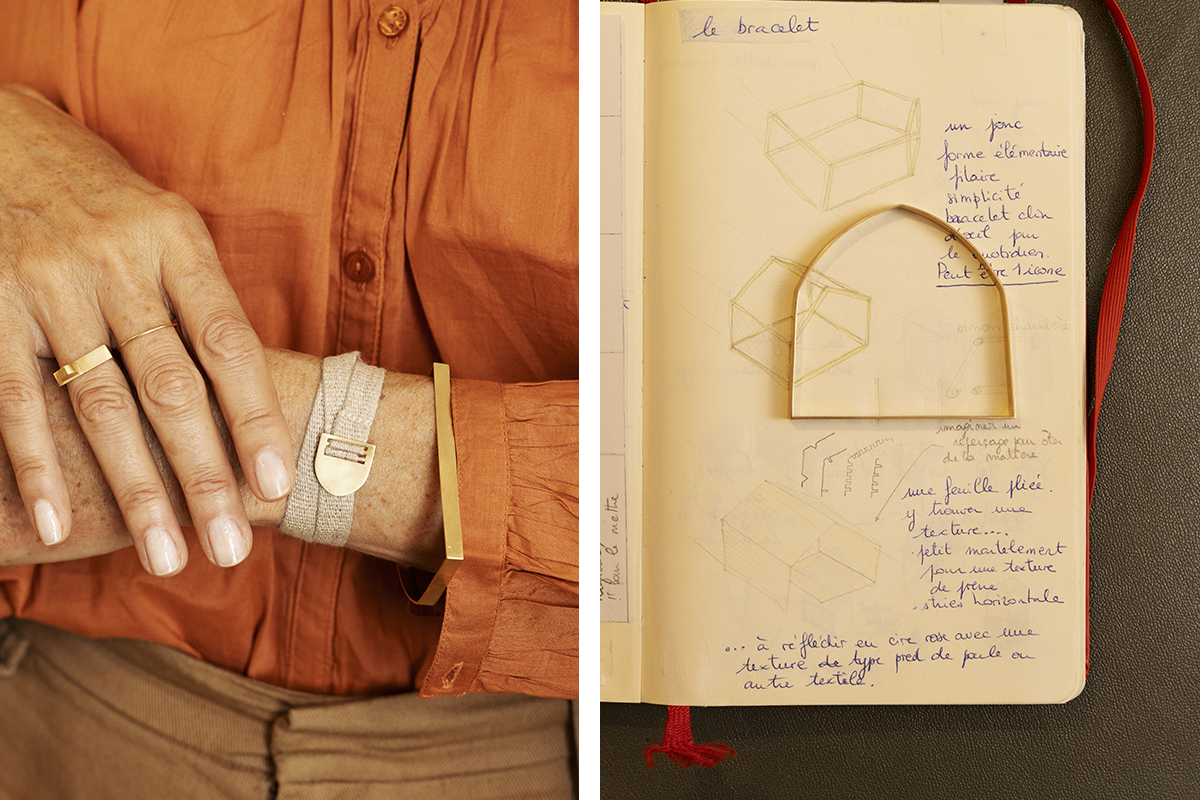 le bracelet
un jonc
forme élémentaire
filaire
simplicité
bracelet clin
d'œil pour
le quotidien.
Peut être 1 icone
imaginer un
perçage pour ôter
de la matière
une feuille pliée.
y trouver une
texture....
. petit martelement
pour une texture
. stries horizontale
... à réfléchir en cire rose avec une
texture de type pied de poule ou
autre textile.
!! pour le mettre